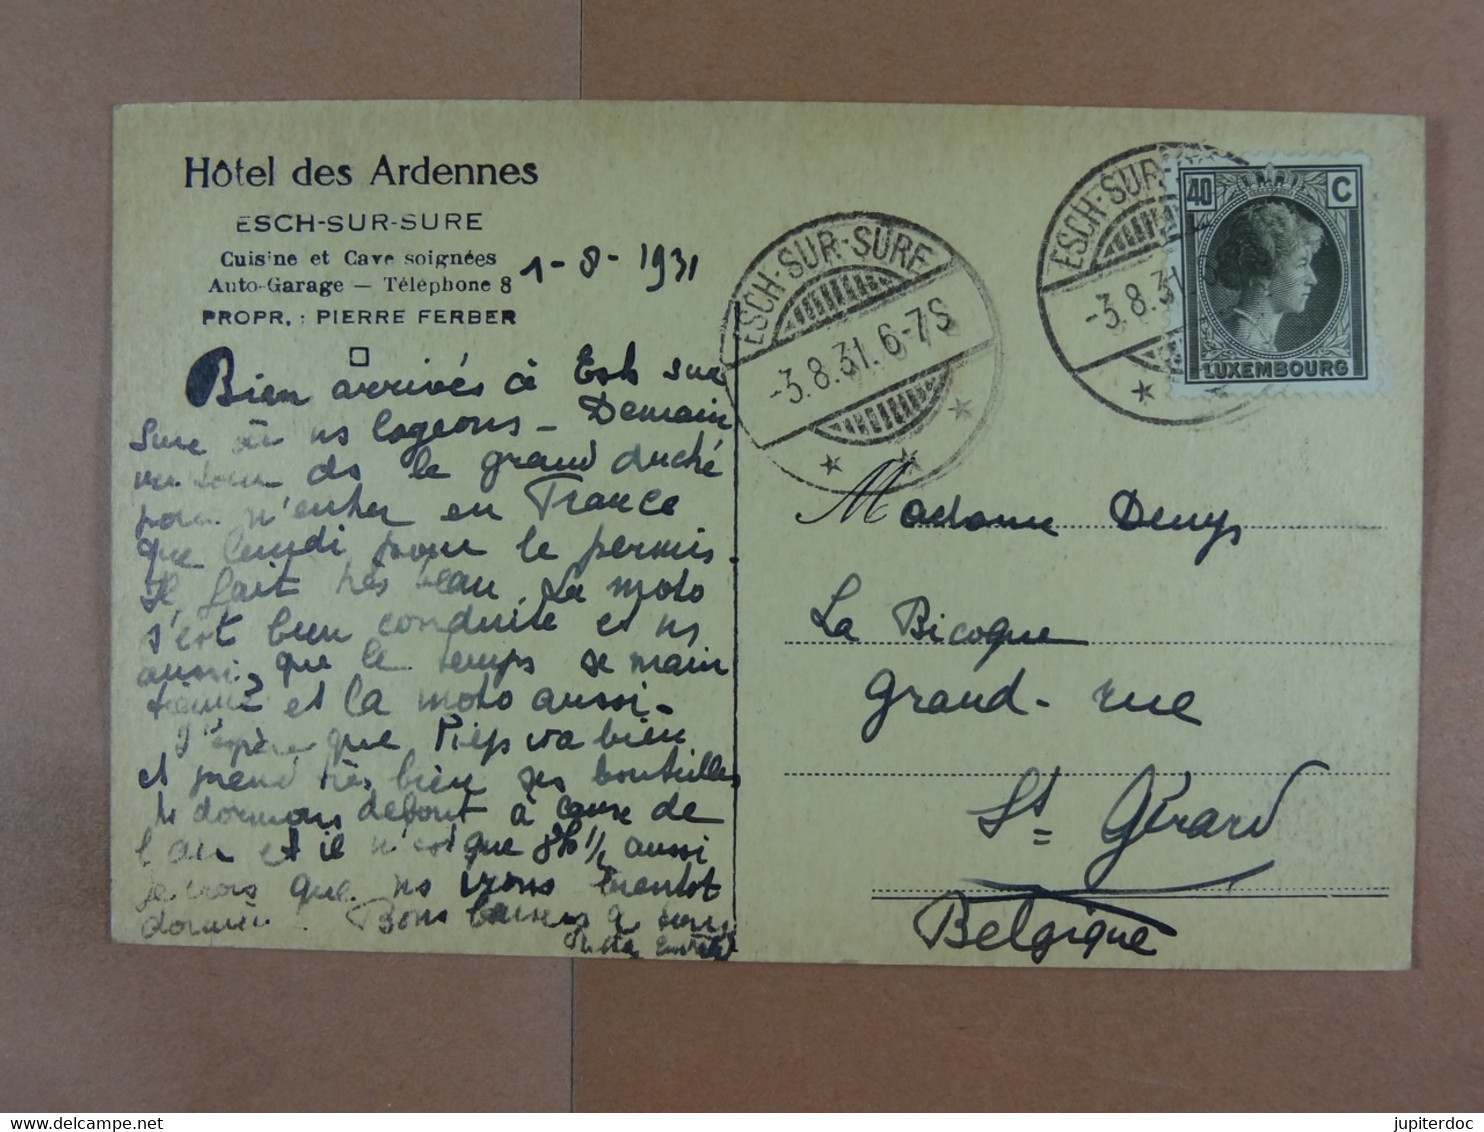 Hôtel des Ardennes
ESCH-SUR-SURE
Cuisine et Cave soignées
Auto-Garage — Téléphone 8
PROPR. : PIERRE FERBER
1-8-1931
Bien arrivés à Esch sur
Sure où ns logeons - Demain
ds le grand duché
pour n'entrer en France
que lundi pour le permis.
Il fait très beau. La moto
s'est bien conduite et ns
aussi, que le temps se main
tienne et la moto aussi -
J'espère que va bien
et prend très bien ses bouteilles
Ns dormons debout à cause de
l'air et il n'est que 8h 1/2 aussi
je crois que ns irons bientôt
dormir. Bons baisers à tous
ESCH-SUR-SURE
-3.8.31.6-7S
ESCH-SUR-SURE
-3.8.31
40 C
LUXEMBOURG
Madame Denys
La Bicoque
Grand-rue
St Gérard
Belgique
delcampe.net
jupiterdoc